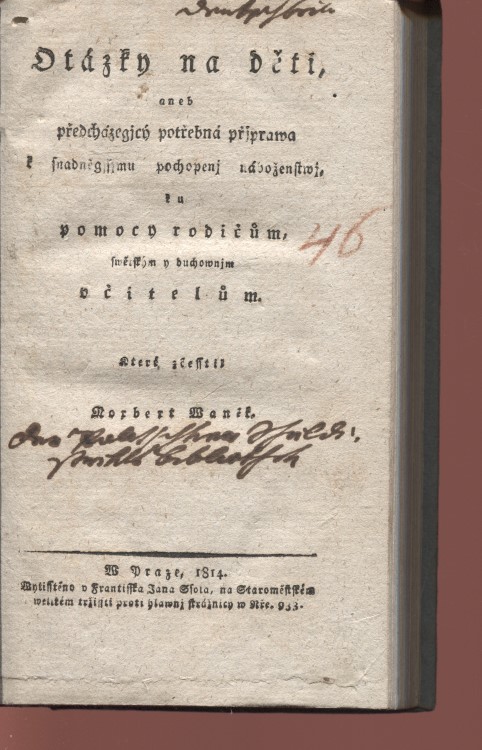 Otázky na děti,
aneb
předcházegjcý potřebná přjprawa
k snadněgssjmu pochopenj náboženstwj,
ku
pomocy rodičům,
swětským y duchownjm
včitelům.
Které zčesstil
Norbert Waněk.
46
W Praze, 1814.
Wytisstěno v Frantisska Jana Ssola, na Staroměstském
welikém tržissti proti hlawnj strážnicy w Nře. 933.